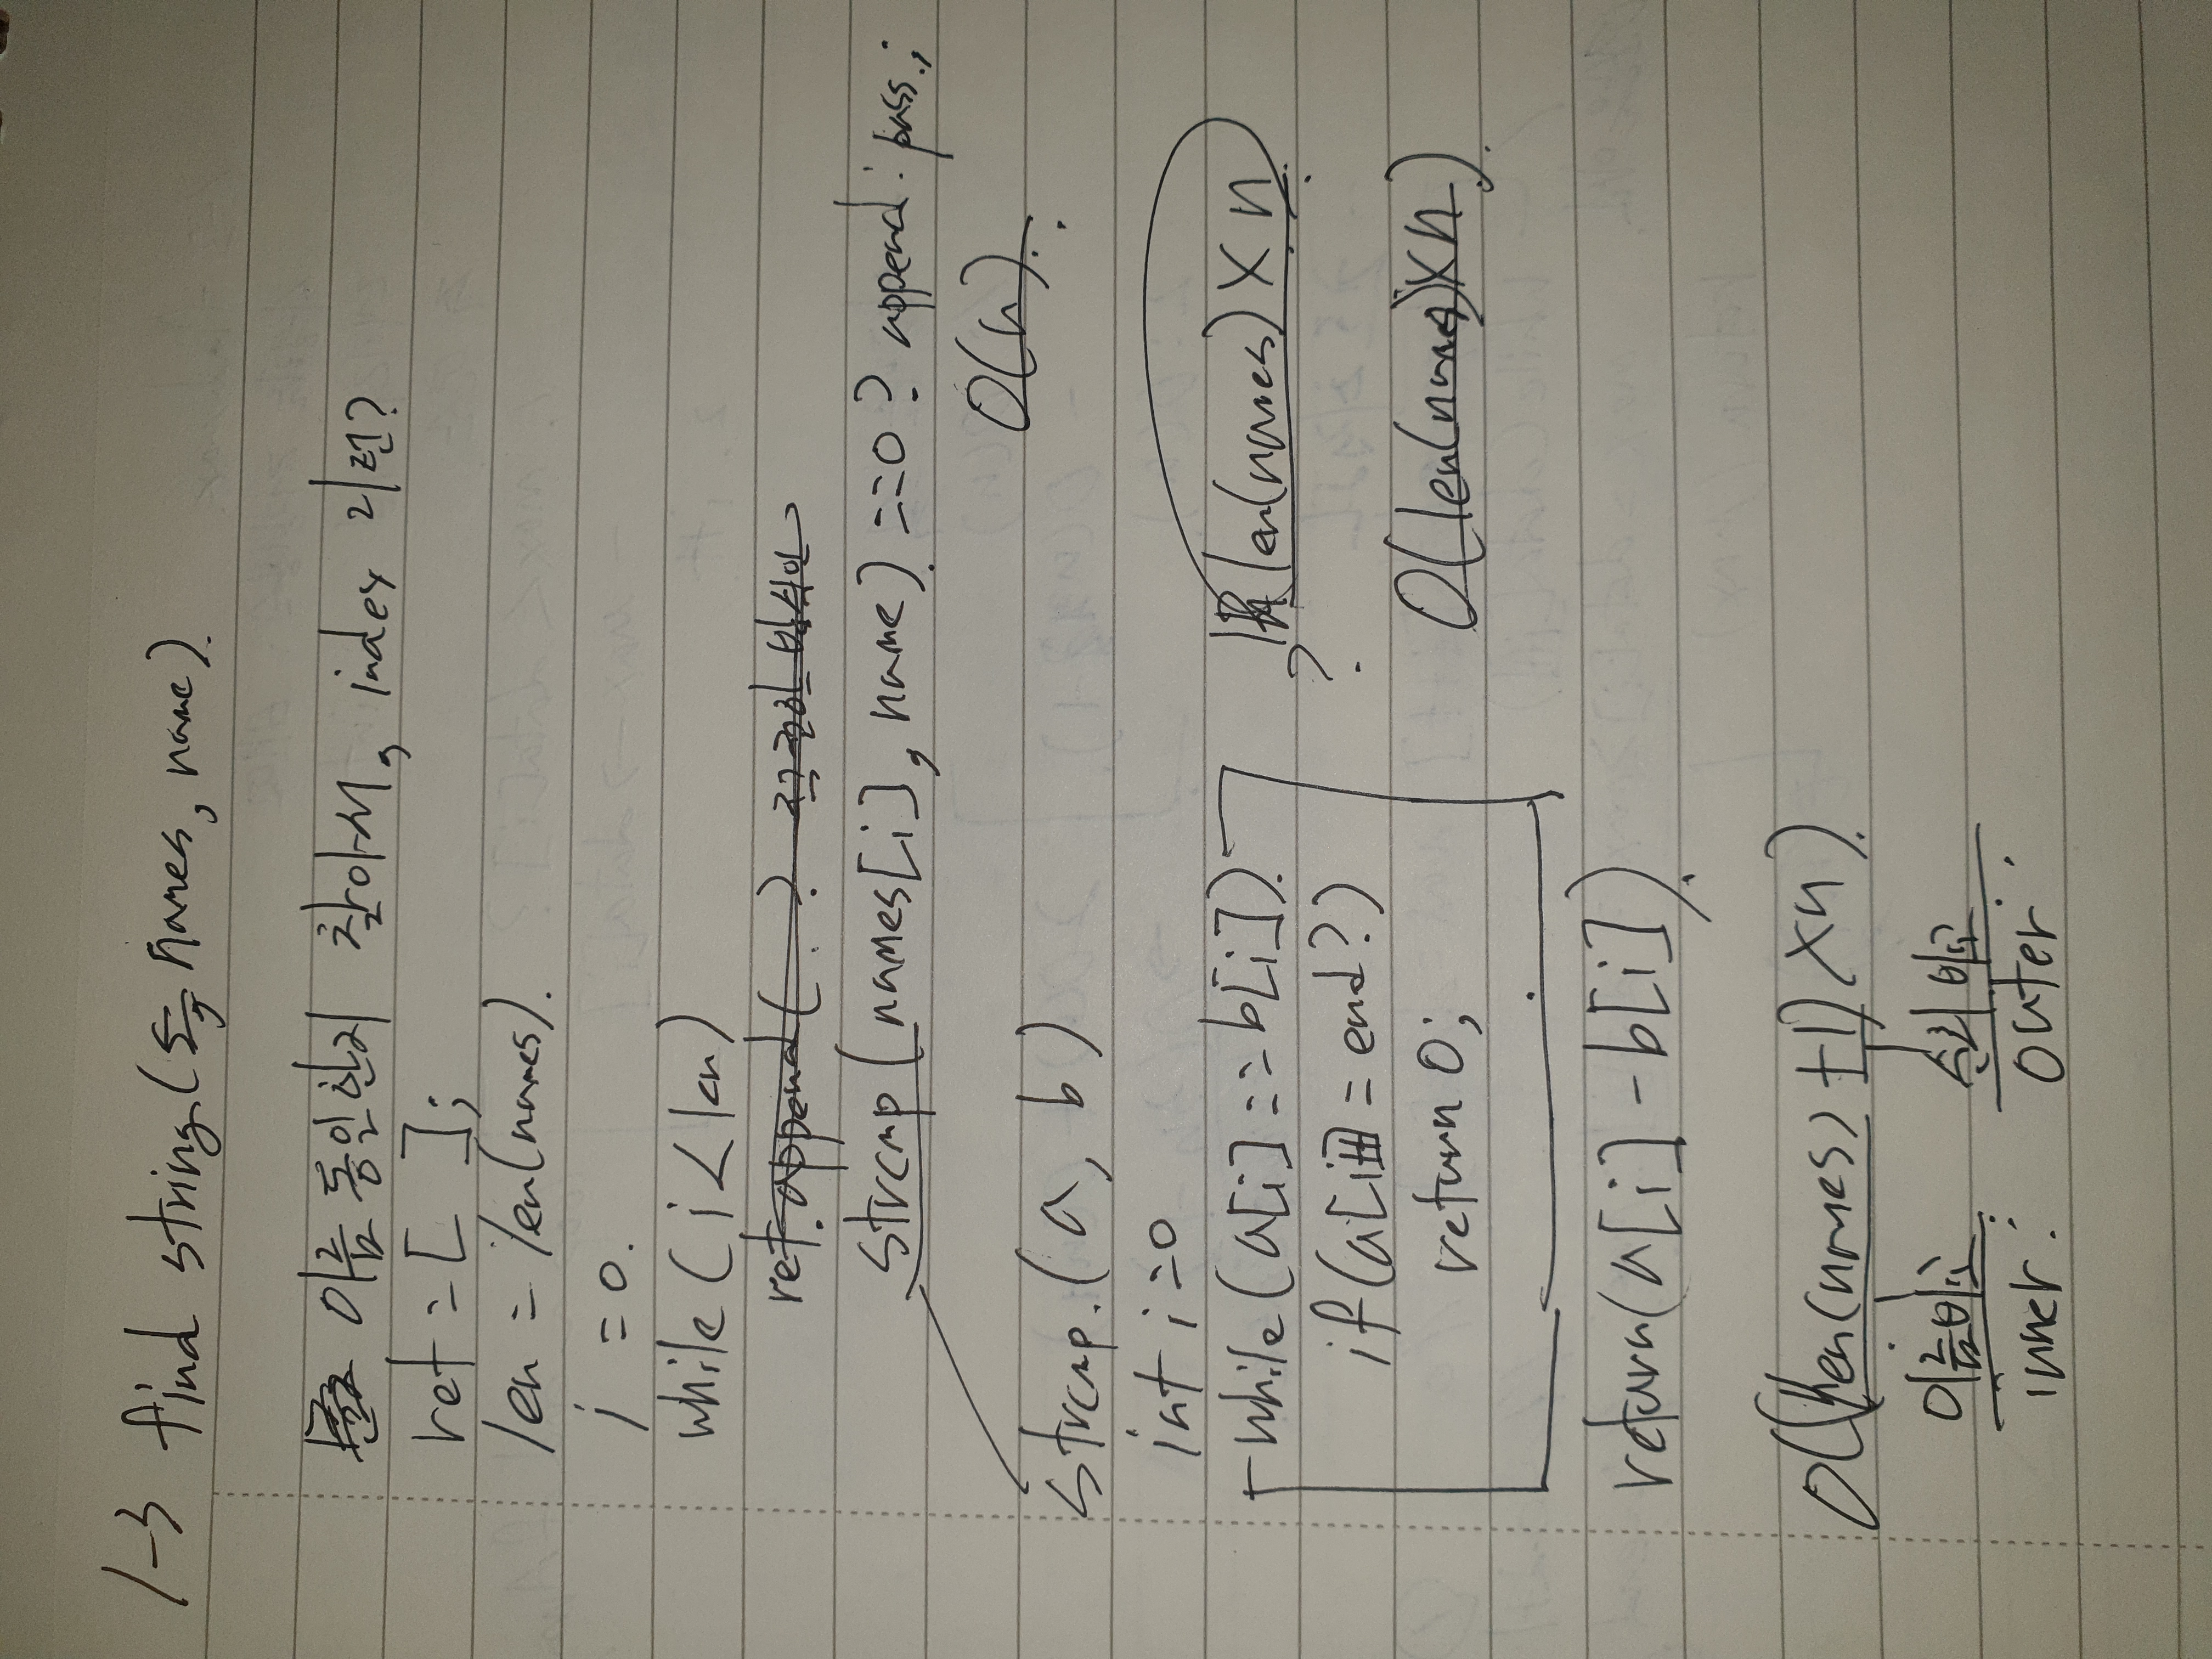 1-3 find string(names, name).
이름 동일한지 찾아서, index 리턴?
ret = [ ];
len = len(names).
i = 0.
while ( i < len)
ret.append( . ?
strcmp (names[i], name) ==0 ? append : pass.;
O(n).
strcmp.(a, b)
int i=0
while (a[i] == b[i]).
if (a[i] = end?)
return 0;
return(a[i] - b[i]).
len(names) × n.
?
O(len(names)×n).
O((len(names) +1) ×n).
이름비교 순회 비교
inner : outer